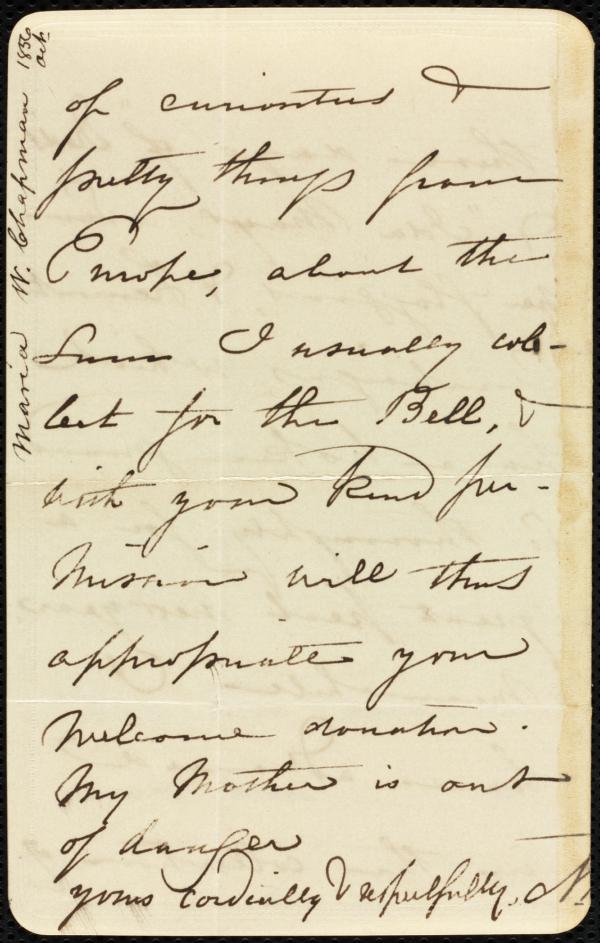 of curiosities &
pretty things from
Europe, about the
Sum I usually col-
lect for the Bell, &
with your kind per-
mission will thus
appropriate your
welcome donation.
My Mother is out
of danger
yours cordially & respectfully, M
Maria W. Chapman 1856
Oct.